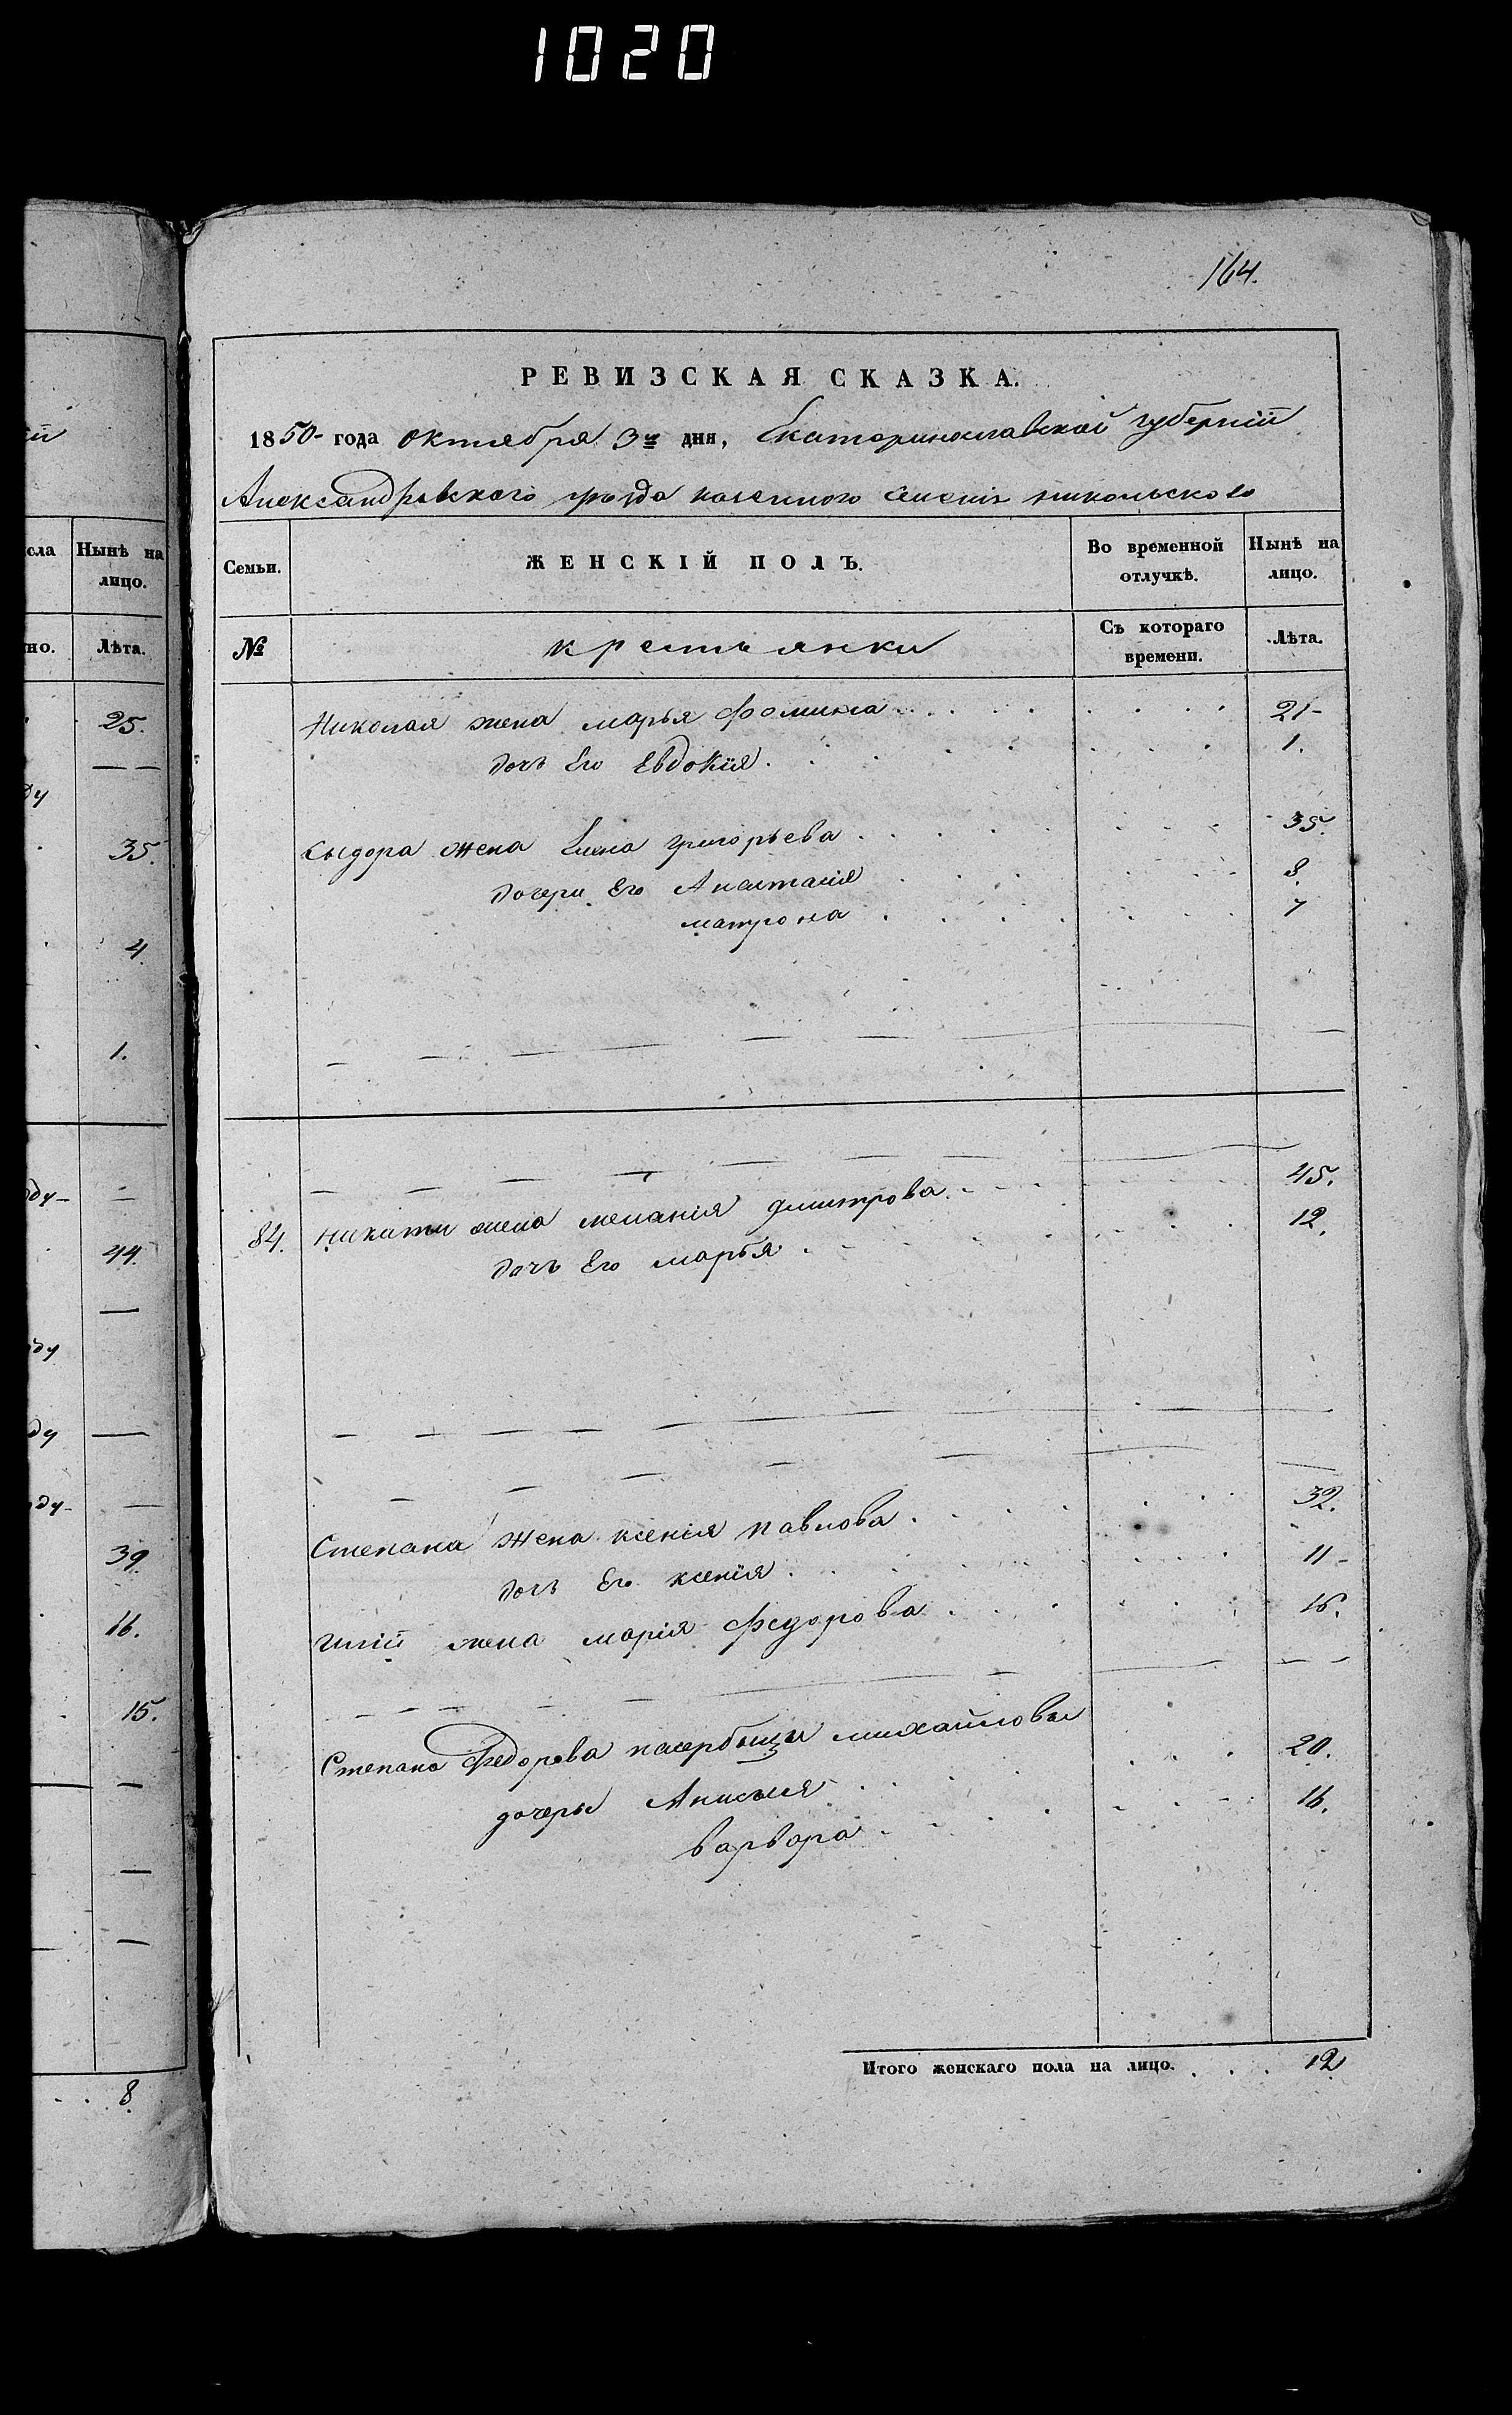 1020
164.
РЕВИЗСКАЯ СКАЗКА.
1850 - года октября 3го дня, Екатеринославской губерніи
Александровского уезда казенного селенія никольского
сла
Нынѣ на лицо.
Семьи.
ЖЕНСКІЙ ПОЛЪ.
Во временной отлучкѣ.
Нынѣ на лицо.
но.
Лѣта.
№
крестьянки
Съ котораго времени.
Лѣта.
25.
Николая жена марья Фомина 21-
дочь Его Евдокія 1.
ду
35.
Сыдора жена Елена григорьева 35.
дочери Его Анастасія 8.
матрона 7
4.
1.
оду -
44.
84. никиты жена меланія дмитрова 45.
дочь Его марья 12.
оду
ду
оду -
39.
16.
15.
8.
Степана жена ксенія павлова 32.
дочь Его ксенія 11 -
жена марія федорова 16.
Степана Федорова михайловы
дочеры Анисья 20.
варвара 16.
Итого женскаго пола на лицо. 12